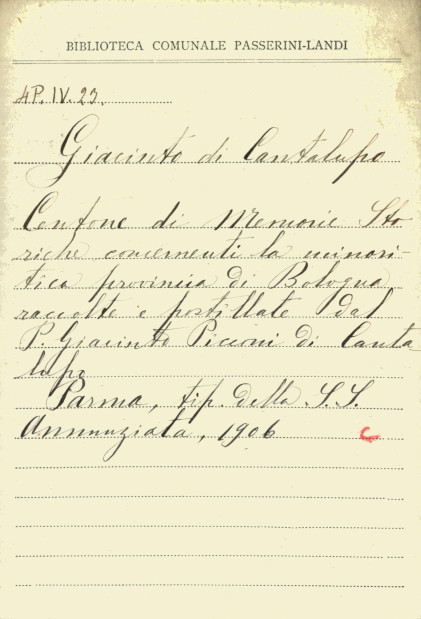 BIBLIOTECA COMUNALE PASSERINI-LANDI
4P. IV. 23.
Giacinto di Cantalupo
Centone di Memorie Sto
riche concernenti la minori-
tica provincia di Bologna
raccolte e postillate dal
P. Giacinto Piccioni di Canta
lupo
Parma, tip. della S.S.
Annunziata, 1906
C